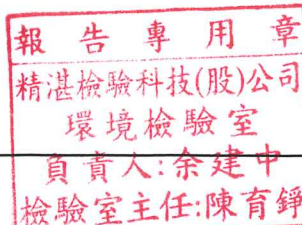 報告專用章
精湛檢驗科技(股)公司
環境檢驗室
負責人:余建中
檢驗室主任:陳育錚